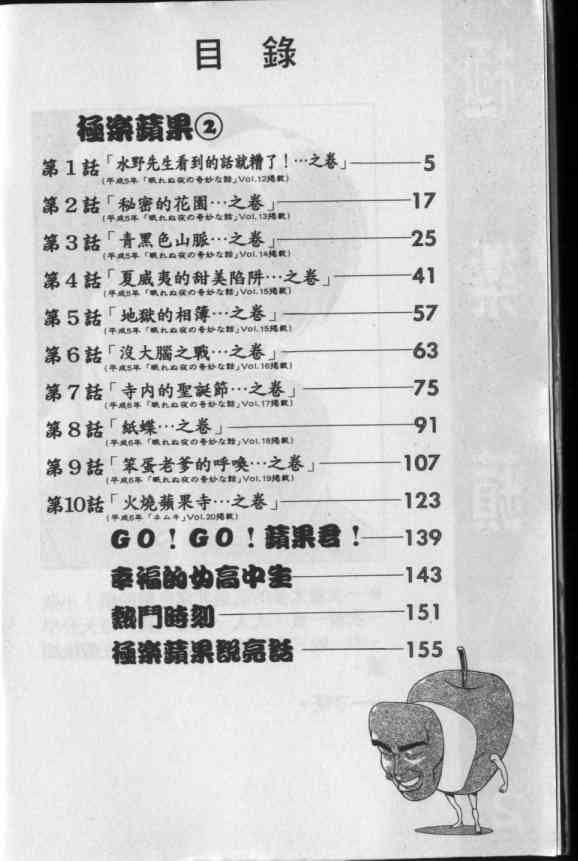 目 錄
極楽蘋果②
第1話「水野先生看到的話就糟了！…之巻」 5
(平成5年「眠れぬ夜の奇妙な話」Vol.12掲載)
第2話「秘密的花園…之巻」 17
(平成5年「眠れぬ夜の奇妙な話」Vol.13掲載)
第3話「青黑色山脈…之巻」 25
(平成5年「眠れぬ夜の奇妙な話」Vol.14掲載)
第4話「夏威夷的甜美陷阱…之巻」 41
(平成5年「眠れぬ夜の奇妙な話」Vol.15掲載)
第5話「地獄的相簿…之巻」 57
(平成5年「眠れぬ夜の奇妙な話」Vol.15掲載)
第6話「沒大腦之戰…之巻」 63
(平成5年「眠れぬ夜の奇妙な話」Vol.16掲載)
第7話「寺内的聖誕節…之巻」 75
(平成6年「眠れぬ夜の奇妙な話」Vol.17掲載)
第8話「紙蝶…之巻」 91
(平成6年「眠れぬ夜の奇妙な話」Vol.18掲載)
第9話「笨蛋老爹的呼喚…之巻」 107
(平成6年「眠れぬ夜の奇妙な話」Vol.19掲載)
第10話「火燒蘋果寺…之巻」 123
(平成6年「ネムキ」Vol.20掲載)
GO！GO！蘋果君！ 139
幸福的女高中生 143
熱鬥時刻 151
極楽蘋果說亮話 155